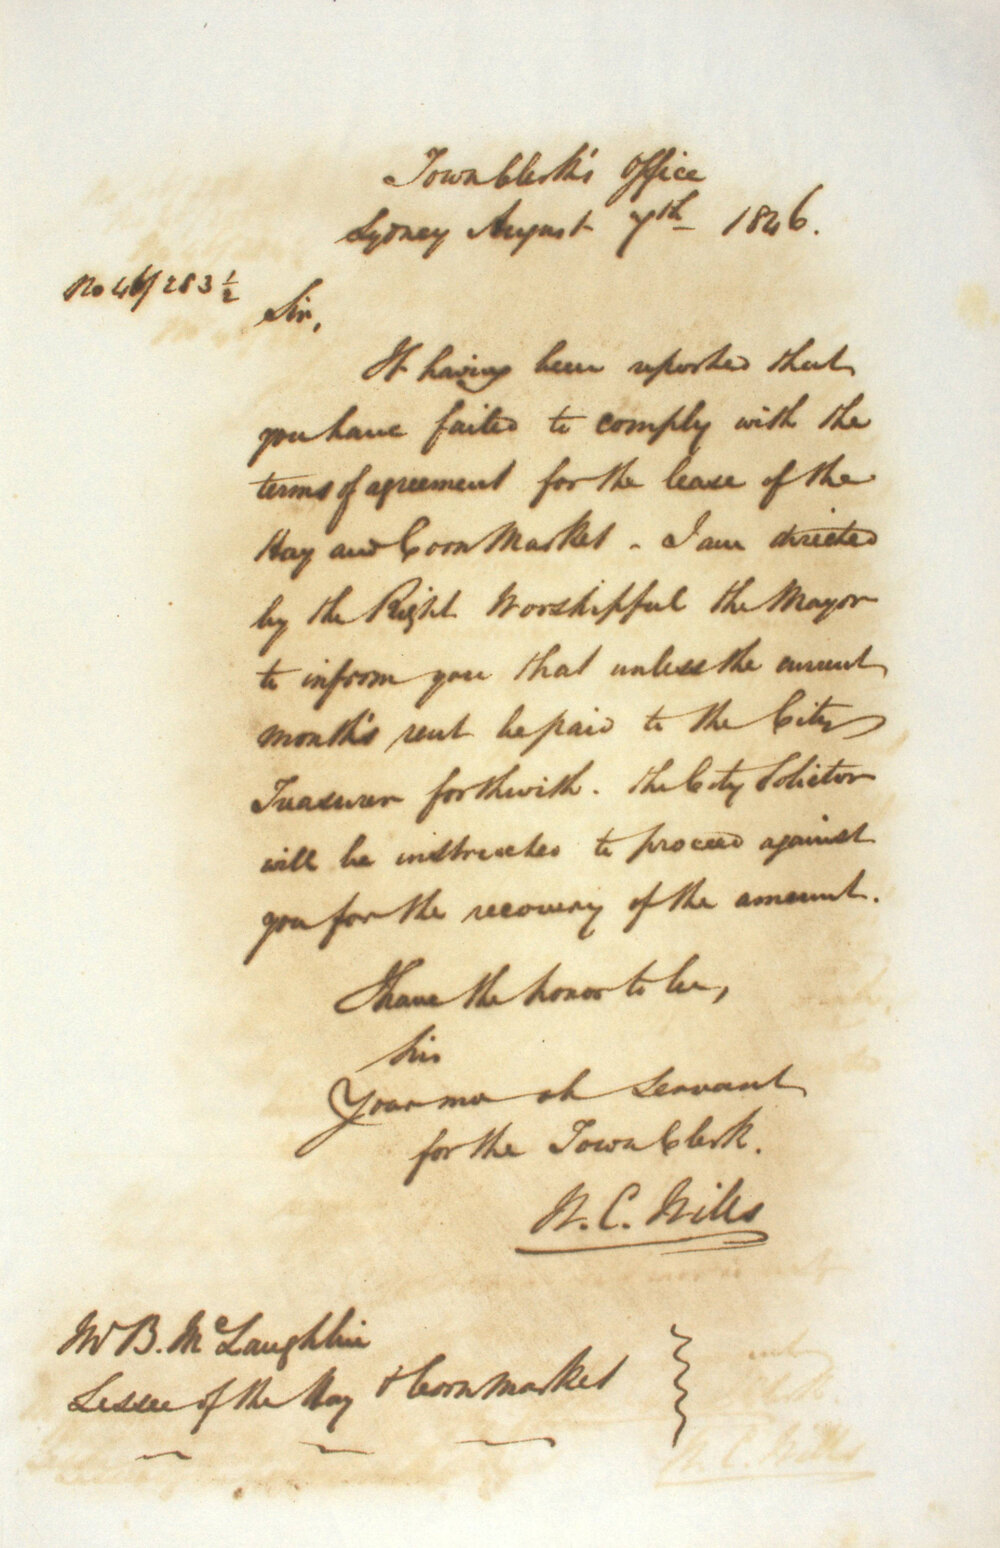 Town Clerk's Office
Sydney August 7th 1846.
No 46/283 1/2
Sir,
It having been reported that
you have failed to comply with the
terms of agreement for the lease of the
Hay and Corn Market - I am directed
by the Right Worshipful the Mayor
to inform you that unless the current
month's rent be paid to the City
Treasurer forthwith. the City Solicitor
will be instructed to proceed against
you for the recovery of the amount.
I have the honor to be,
Sir
Your mo ob Servant
for the Town Clerk.
W. C. Wills
Mr B. McLaughlin
Lessee of the Hay & Corn Market